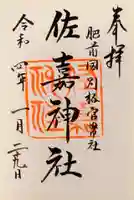 奉拝
肥前国別格官幣社
佐嘉神社
令和四年一月二九日